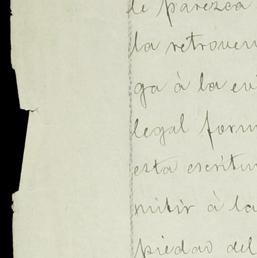 le parezca
la retroven
ga á la evi
legal form
esta escritu
mitir á la
piedad del